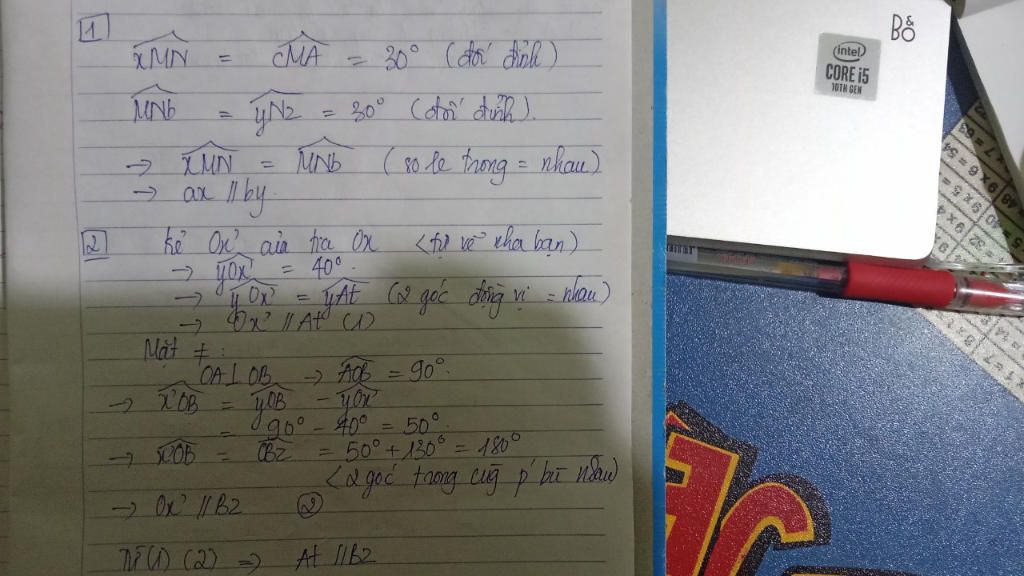 1
xMN = cMA = 30° (đối đỉnh)
MNb = yNz = 30° (đối đỉnh).
→ xMN = MNb (so le trong = nhau)
→ ax // by.
2 Kẻ Ox' của tia Ox <tự vẽ nha bạn)
→ yOx' = 40°.
→ yOx' = yAt (2 góc đồng vị = nhau)
→ Ox' // At (1)
Mặt ≠ :
OA ⊥ OB → AOB = 90°.
→ x'OB = yOB - yOx'
= 90° - 40° = 50°.
→ x'OB = OBz = 50° + 130° = 180°
<2 góc trong cùg p' bù nhau)
→ Ox' // Bz ②
Từ (1) (2) ⇒ At // Bz
B&O
intel
CORE i5
10TH GEN